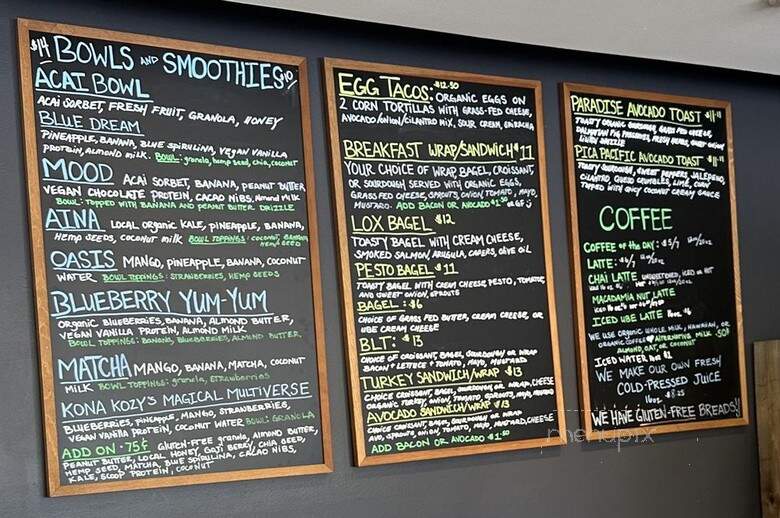 $14 BOWLS AND SMOOTHIES $10
ACAI BOWL
ACAI SORBET, FRESH FRUIT, GRANOLA, HONEY
BLUE DREAM
PINEAPPLE, BANANA, BLUE SPIRULINA, VEGAN VANILLA
PROTEIN, ALMOND MILK. BOWL: granola, hemp seed, chia, coconut
MOOD ACAI SORBET, BANANA, PEANUT BUTTER,
VEGAN CHOCOLATE PROTEIN, CACAO NIBS, Almond Milk
BOWL: TOPPED WITH BANANA AND PEANUT BUTTER DRIZZLE
AINA LOCAL ORGANIC KALE, PINEAPPLE, BANANA,
HEMP SEEDS, COCONUT MILK BOWL TOPPINGS: COCONUT, BANANA
HEMP SEED
OASIS MANGO, PINEAPPLE, BANANA, COCONUT
WATER BOWL TOPPINGS: STRAWBERRIES, HEMP SEEDS
BLUEBERRY YUM-YUM
ORGANIC BLUEBERRIES, BANANA, ALMOND BUTTER,
VEGAN VANILLA PROTEIN, ALMOND MILK
BOWL TOPPINGS: BANANA, BLUEBERRIES, ALMOND BUTTER
MATCHA MANGO, BANANA, MATCHA, COCONUT
MILK BOWL TOPPINGS: granola, strawberries
KONA KOZY'S MAGICAL MULTIVERSE
BLUEBERRIES, PINEAPPLE, MANGO, STRAWBERRIES,
VEGAN VANILLA PROTEIN, COCONUT WATER BOWL: GRANOLA
ADD ON .75¢ GLUTEN-FREE granola, ALMOND BUTTER,
PEANUT BUTTER, LOCAL HONEY, GOJI BERRY, CHIA SEED,
HEMP SEED, MATCHA, BLUE SPIRULINA, CACAO NIBS,
KALE, SCOOP PROTEIN, COCONUT
EGG TACOS: $12.50 ORGANIC EGGS ON
2 CORN TORTILLAS WITH GRASS-FED CHEESE,
AVOCADO/ONION/CILANTRO MIX, SOUR CREAM, SRIRACHA
BREAKFAST WRAP/SANDWICH $11
YOUR CHOICE OF WRAP, BAGEL, CROISSANT,
OR SOURDOUGH SERVED WITH ORGANIC EGGS,
GRASS FED CHEESE, SPROUTS, ONION, TOMATO, MAYO,
MUSTARD. ADD BACON OR AVOCADO $1.50 or GF
LOX BAGEL $12
TOASTY BAGEL WITH CREAM CHEESE,
SMOKED SALMON, ARUGULA, CAPERS, OLIVE OIL
PESTO BAGEL $11
TOASTY BAGEL WITH CREAM CHEESE, PESTO, TOMATOE,
AND SWEET ONION, SPROUTS
BAGEL: $6
CHOICE OF GRASS FED BUTTER, CREAM CHEESE, OR
UBE CREAM CHEESE
BLT: $13
CHOICE OF CROISSANT, BAGEL, SOURDOUGH OR WRAP
BACON + LETTUCE + TOMATO, MAYO, MUSTARD
TURKEY SANDWICH/WRAP $13
CHOICE CROISSANT, BAGEL, SOURDOUGH, OR WRAP, CHEESE
ORGANIC TURKEY, ONION, TOMATO, SPROUTS, MAYO, MUSTARD
AVOCADO SANDWICH/WRAP $13
CHOICE CROISSANT, BAGEL, SOURDOUGH OR WRAP
AVO, SPROUTS, ONION, TOMATO, MAYO, MUSTARD, CHEESE
ADD BACON OR AVOCADO $1.50
PARADISE AVOCADO TOAST
TOASTY ORGANIC SOURDOUGH, GRASS FED CHEESE,
DALMATIAN FIG PRESERVES, ONION
PICA PACIFIC AVOCADO TOAST
TOASTY SOURDOUGH, SWEET PEPPERS, JALAPEÑO,
CILANTRO, QUESO CRUMBLES, LIME, CORN
TOPPED WITH SPICY COCONUT CREAM SAUCE
COFFEE
COFFEE of the DAY:
LATTE:
CHAI LATTE
MACADAMIA NUT LATTE
ICED UBE LATTE
WE USE ORGANIC WHOLE MILK, HAWAIIAN, OR
ORGANIC COFFEE ALTERNATIVE MILK
ALMOND, OAT, OR COCONUT
ICED WATER
WE MAKE OUR OWN FRESH
COLD-PRESSED JUICE
WE HAVE GLUTEN-FREE BREADS!!
menupix